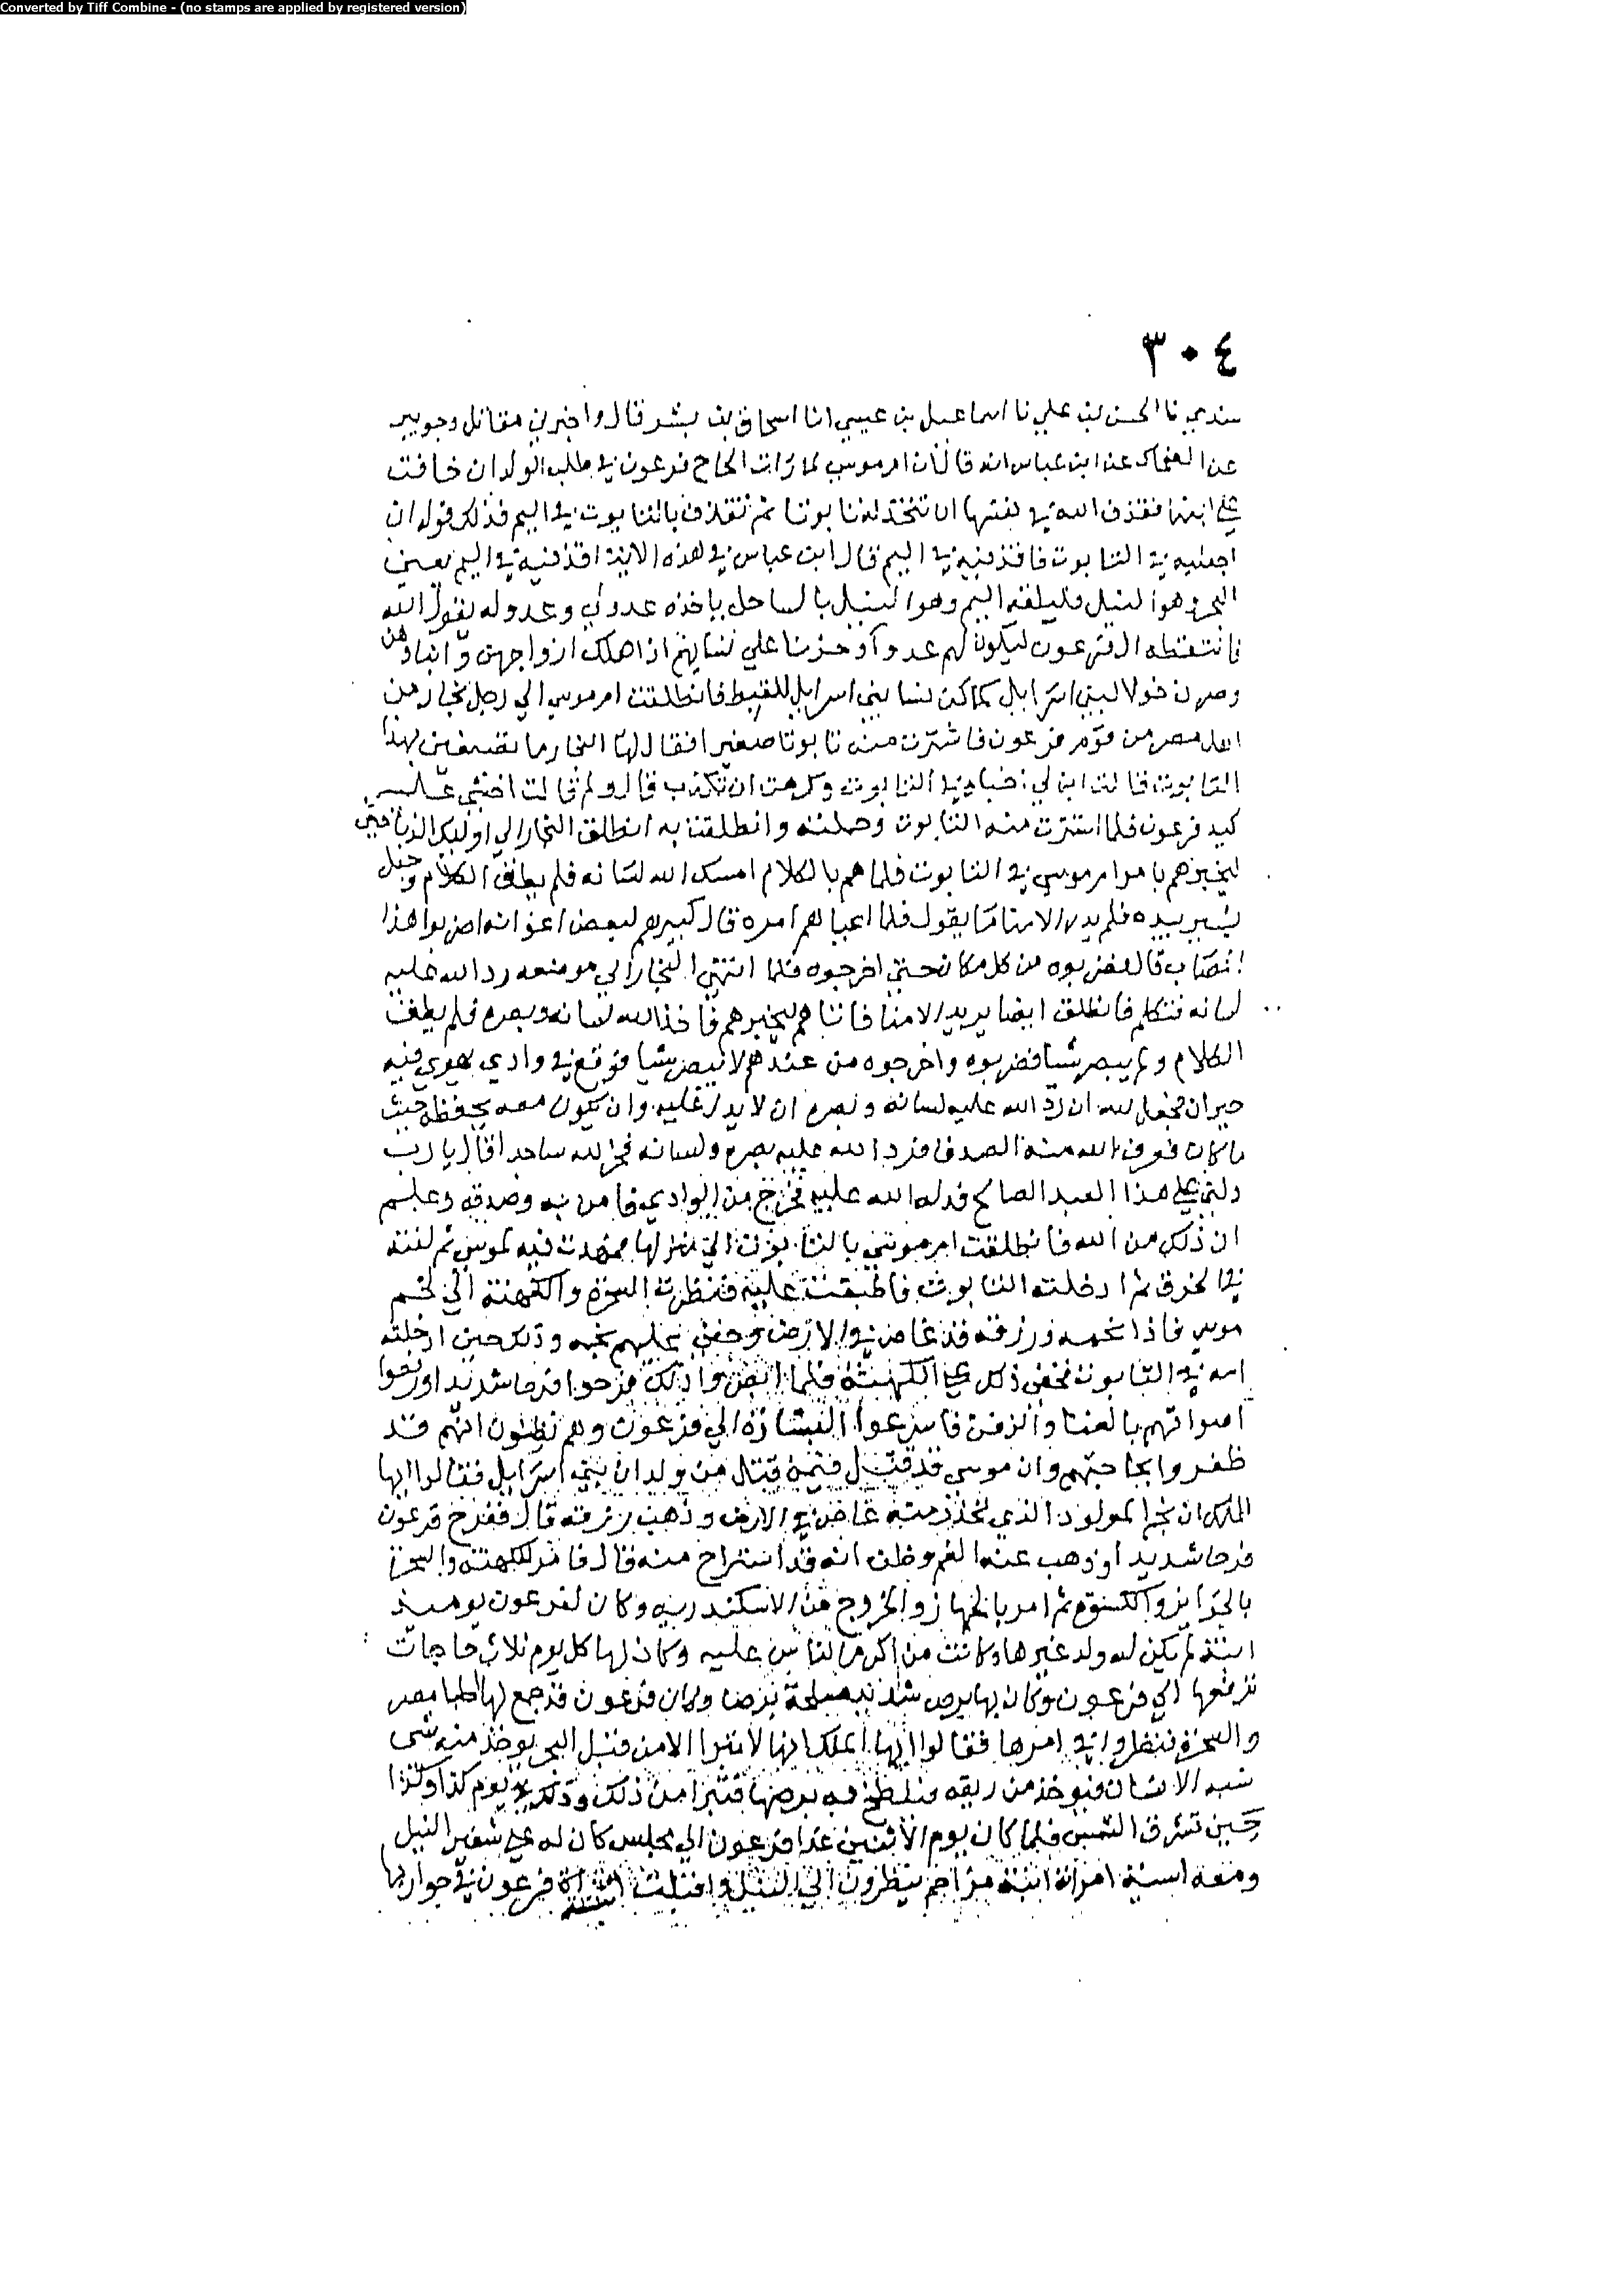 Converted by Tiff Combine - (no stamps are applied by registered version)
٣٠٤
سندي نا الحسن بن علي نا اسماعيل بن عيسي انا اسحاق بن بشر قال واخبرني مقاتل وجويبر
عن الضحاك عن ابن عباس انه قال ان ام موسي لما رات الحاح فرعون في طلب الولدان خافت
علي ابنها فقذف الله في نفسها ان تتخذ له تابوتا ثم تقذف بالتابوت في اليم فذلك قوله ان
اجعليه في التابوت فاقذفيه في اليم قال ابن عباس في هذه الاية اقذفيه في اليم يعني
البحر وهو النيل فليلقه اليم وهو النيل بالساحل ياخذه عدو لي وعدو له يقول الله
فالتقطه ال فرعون ليكون لهم عدوا وحزنا علي نسايهم اذا هلك ازواجهن وابناوهن
وصرن خولا لبني اسرايل كما كن نسا بني اسرايل للقبط فانطلقت ام موسي الي رجل نجار من
اهل مصر من قوم فرعون فاشترت منه تابوتا صغيرا فقال لها النجار ما تصنعين بهذا
التابوت قالت ابن لي اخباه في التابوت وكرهت ان تكذب قال ولم قالت اخشي عليه
كيد فرعون فلما اشترت منه التابوت وحملته وانطلقت به انطلق النجار الي اوليك الذباحين
ليخبرهم بامر ام موسي في التابوت فلما هم بالكلام امسك الله لسانه فلم يطق الكلام وجعل
يشير بيده فلم يدر الامنا ما يقول فلما اعياهم امره قال كبيرهم لبعض اعوانه اضربوا هذا
المصاب قال فضربوه من كل مكان حتي اخرجوه فلما انتهي النجار الي موضعه رد الله عليه
لسانه فتكلم فانطلق ايضا يريد الامنا فاتاهم ليخبرهم فاخذ الله لسانه وبصره فلم يطق
الكلام ولم يبصر شيا فضربوه واخرجوه من عندهم لا يبصر شيا فوقع في وادي يهوي فيه
حيران فجعل لله ان رد الله عليه لسانه وبصره ان لا يدل عليه وان يكون معه يحفظه حيث
ما كان فعرف الله منه الصدق فرد الله عليه بصره ولسانه فخر لله ساجدا قال يا رب
دلني علي هذا العبد الصالح فدله الله عليه فخرج من الوادي فامن به وصدقه وعلم
ان ذلك من الله فانطلقت ام موسي بالتابوت الي منزلها فمهدت فيه لموسي ثم لفته
في الخرق ثم ادخلته التابوت فاطبقت عليه فنظرت السحرة والكهنة الي نجم
موسي فاذا نجمه ورزقه قد غاص في الارض وخفي عليهم نجمه وذلك حين ادخلته
امه في التابوت فخفي ذلك علي الكهنة فلما ابصروا ذلك فرحوا فرحا شديدا ورفعوا
اصواتهم بالغنا والزفن فاسرعوا البشارة الي فرعون وهم يظنون انهم قد
ظفروا بحاجتهم وان موسي قد قتل فيمن قتل من ولدان بني اسرايل فقالوا ايها
الملك ان نجم المولود الذي تحذر منه غاص في الارض وذهب رزقه قال ففرح فرعون
فرحا شديدا وذهب عنه الغم وظن انه قد استراح منه قال فامر للكهنة والسحرة
بالجوايز والكسوة ثم امر بالجهاز والخروج من الاسكندرية وكان لفرعون يوميذ
ابنة لم يكن له ولد غيرها وكانت من اكرم الناس عليه وكان لها كل يوم ثلاث حاجات
ترفعها الي فرعون وكان بها برص شديد مسلخة برصا وكان فرعون قد جمع لها اطبا مصر
والسحرة فنظروا في امرها فقالوا ايها الملك انها لا تبرا الا من قبل البحر يوخذ منه شي
شبه الانسان فيوخذ من ريقه فيلطخ به برصها فتبرا من ذلك وذلك في يوم كذا وكذا
حين تشرق الشمس فلما كان يوم الاثنين غدا فرعون الي مجلس كان له علي شفير النيل
ومعه اسية امراته ابنة مزاحم ينظرون الي النيل واقبلت ابنة فرعون في جواريها